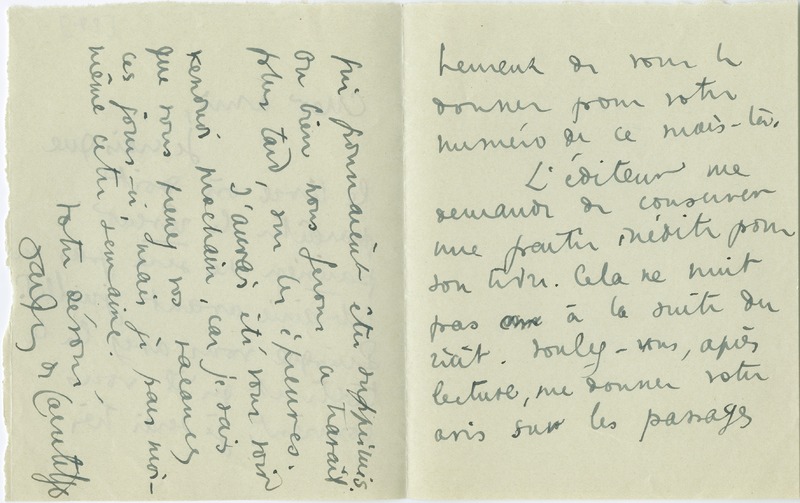 heureux de vous le
donner pour votre
numéro de ce mois-là.
L'éditeur me
demande de conserver
une partie inédite pour
son livre. Cela ne nuit
pas à la suite du
récit. Voulez-vous, après
lecture, me donner votre
avis sur les passages
qui pourraient être supprimés.
Ou bien nous ferons ce travail
plus tard, sur les épreuves.
J'aurais été vous voir
prochain, car je sais
que vous prenez vos vacances
ces jours-ci, mais je pars moi-
même cette semaine.
Votre dévoué,